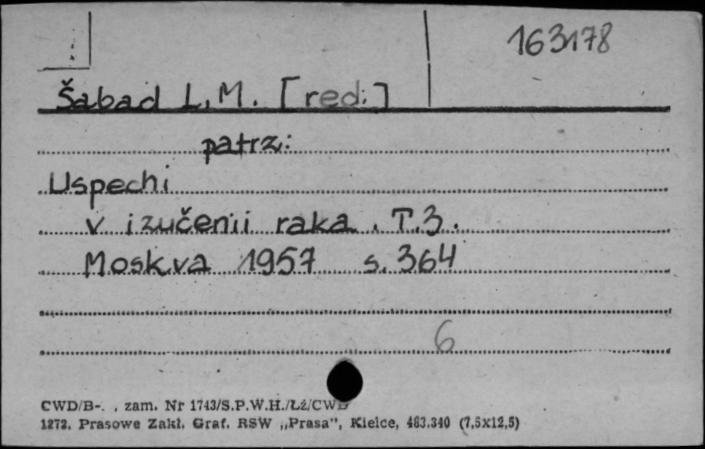 163178
Šabad L.M. [red.]
patrz:
Uspechi
v izučenii raka. T.3.
Moskva 1957 s. 364
6
CWD/B-. , zam. Nr 1743/S.P.W.H./Łż/CWD
1272. Prasowe Zakł. Graf. RSW „Prasa”, Kielce, 483.340 (7,5x12,5)